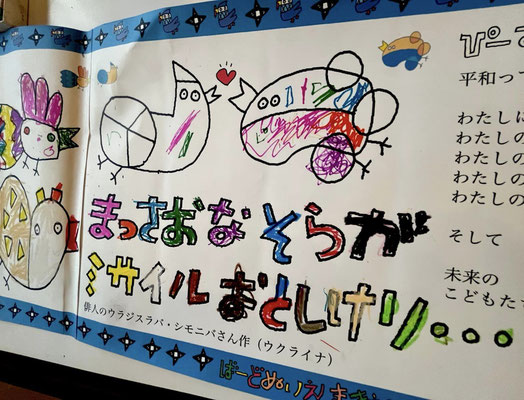 まっさおなそらが
ミサイルおとしけり...
俳人のウラジスラバ・シモニバさん作（ウクライナ）
ぴーす
平和っ
わたしに
わたしの
わたしの
わたしの
わたしの
そして
未来の
こどもた
ばーどぬりえ